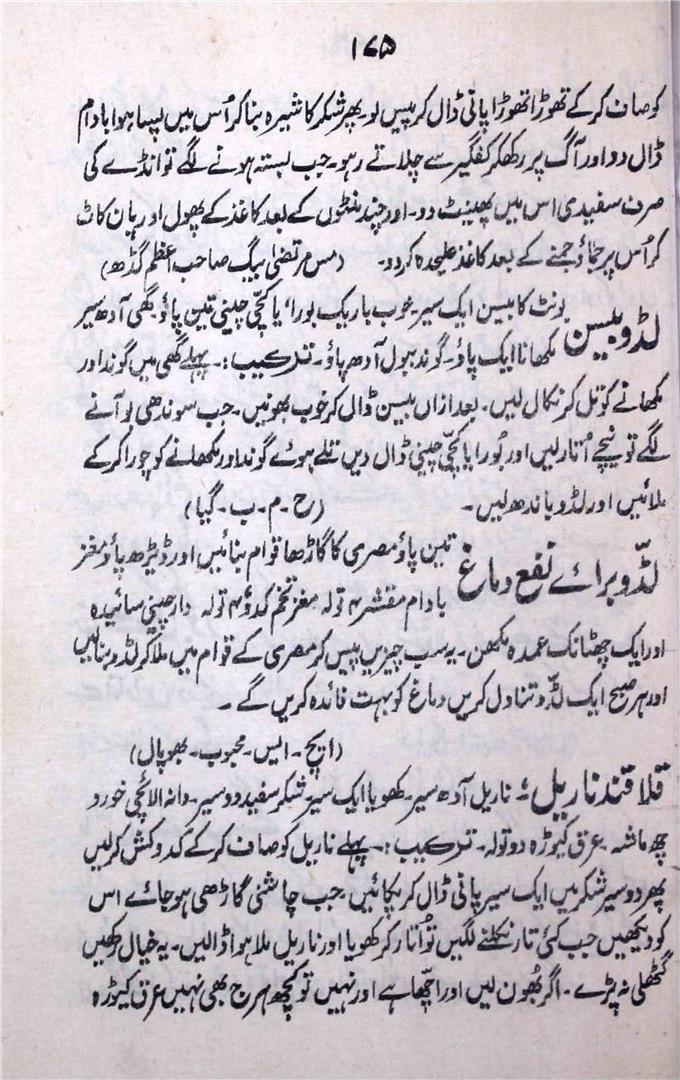 ۱۷۵
کو صاف کرکے تھوڑا تھوڑا پانی ڈال کر پیس لو۔ پھر شکر کا شیرہ بنا کر اُس میں پسا ہوا بادام
ڈال دو اور آگ پر رکھکر کفگیر سے چلاتے رہو۔ جب بستہ ہونے لگے تو انڈے کی
صرف سفیدی اس میں پھینٹ دو۔ اور چند منٹوں کے بعد کاغذ کے پھول اور پان کاٹ
کر اُس پر جماؤ جمنے کے بعد کاغذ علیحدہ کر دو۔ (مس مرتضیٰ بیگ صاحب اعظم گڈھ)
لڈو بیسن بونٹ کا بیسن ایک سیر۔ خوب باریک بورا، یا کچّی چینی تین پاؤ۔ گھی آدھ سیر
مکھانا ایک پاؤ۔ گوند ببول آدھ پاؤ۔ ترکیب:۔ پہلے گھی میں گوند اور
مکھانے کو تل کر نکال لیں۔ بعد ازاں بیسن ڈال کر خوب بھونیں۔ جب سوندھی بو آنے
لگے تو نیچے اُتار لیں اور بُورا یا کچّی چینی ڈال دیں تلے ہوئے گوند اور مکھانے کو چورا کر کے
ملائیں اور لڈو باندھ لیں۔ (رح۔ م۔ ب۔ گیا)
لڈّو برائے نفع دماغ تین پاؤ مصری کا گاڑھا قوام بنائیں اور ڈیڑھ پاؤ مغز
بادام مقشر ۴ تولہ مغز تخم کدو ۴ تولہ دارچینی سائیدہ
اور ایک چھٹانک عمدہ مکھن۔ یہ سب چیزیں پیس کر مصری کے قوام میں ملا کر لڈو بنالیں
اور ہر صبح ایک لڈّو تناول کریں دماغ کو بہت فائدہ کریں گے۔
(ایچ۔ ایس۔ محبوب۔ بھوپال)
قلاقند ناریل:۔ ناریل آدھ سیر۔ کھویا ایک سیر شکر سفید دو سیر۔ دانہ الائچی خورد
چھ ماشہ۔ عرق کیوڑہ دو تولہ۔ ترکیب:۔ پہلے ناریل کو صاف کر کے کدوکش کرلیں
پھر دو سیر شکر میں ایک سیر پانی ڈال کر پکائیں۔ جب چاشنی گاڑھی ہو جائے اس
کو دیکھیں جب کئی تار نکلنے لگیں تو اُتار کر کھویا اور ناریل ملا ہوا ڈالیں۔ یہ خیال رکھیں
گٹھلی نہ پڑے۔ اگر بھُون لیں اور اچھّا ہے اور نہیں تو کچھ ہرج بھی نہیں عرق کیوڑہ